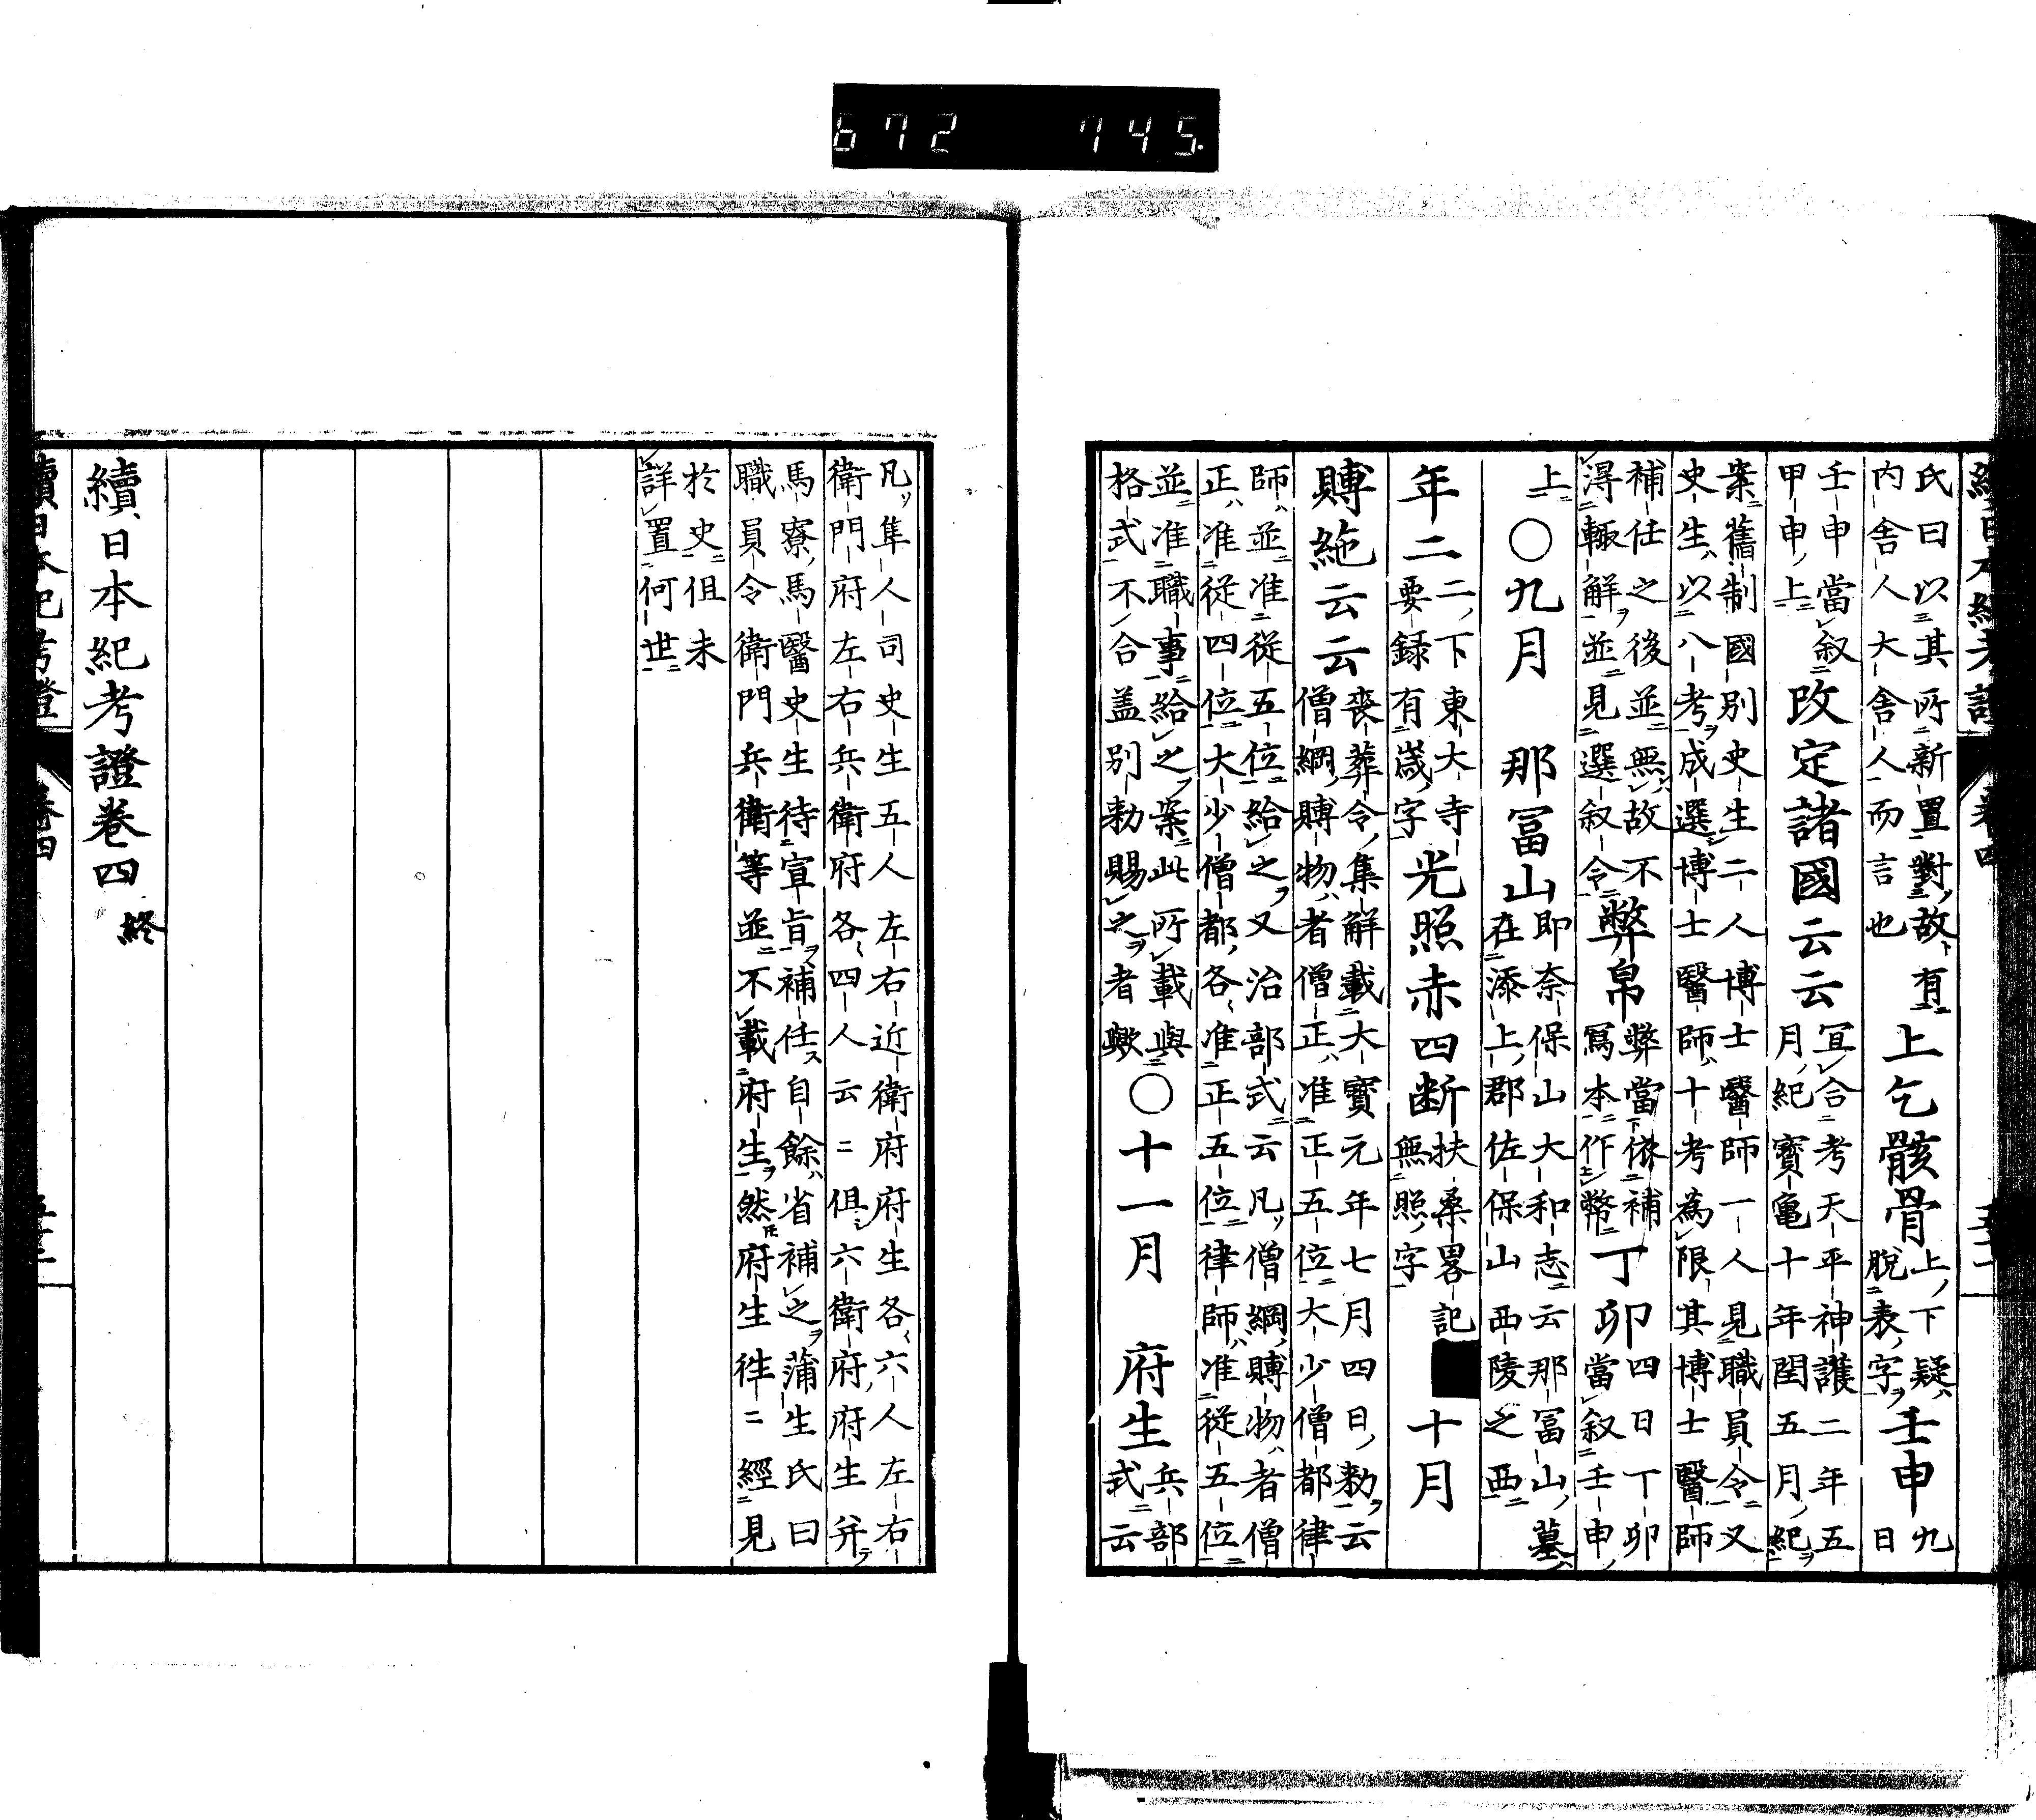 氏曰以其所新置對故有
內舍人大舍人而言也
上乞骸骨
上下疑
脫表字
壬申
九
日
壬申當叙
甲申上
改定諸國云云
冝合考天平神護二年五
月紀寶亀十年閏五月紀
案舊制國別史生二人博士醫師一人見職員令又
史生以八考成選博士醫師十考為限其博士醫師
補任之後並無故不
淂輙解並見選叙令
弊帛
弊當依補
寫本作幣
丁卯
四日丁卯
當叙壬申
上
○九月　那冨山
即奈保山大和志云那冨山墓
在添上郡佐保山西陵之西
年二
二下東大寺
要録有歲字
光照赤四断
扶桑畧記
無照字
十月
賻絁云云
喪葬令集解載大寶元年七月四日勅云
僧綱賻物者僧正准正五位大少僧都律
師並准從五位給之又治部式云凡僧綱賻物者僧
正准從四位大少僧都各准正五位律師准從五位
並准職事給之案此所載與
格式不合盖別勅賜之者歟
○十一月　府生
兵部
式云
凡隼人司史生五人左右近衛府府生各六人左右
衛門府左右兵衛府各四人云〻俱六衛府府生并
馬寮馬醫史生待宣旨補任自餘省補之蒲生氏曰
職員令衛門兵衛等並不載府生然府生往〻經見
於史但未
詳置何世
續日本紀考證卷四 終
672 745